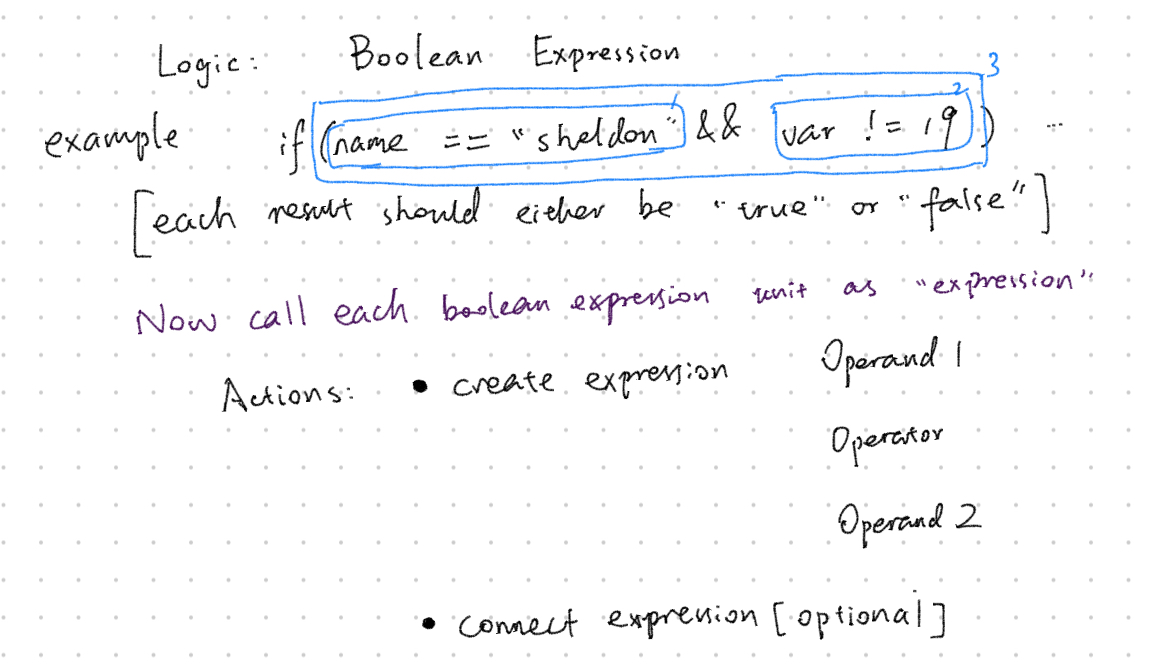 Logic: Boolean Expression
3
1 2
example if (name == "sheldon" && var != 19) ...
[each result should either be "true" or "false"]
Now call each boolean expression unit as "expression"
Actions: • create expression Operand 1
Operator
Operand 2
• connect expression [optional]